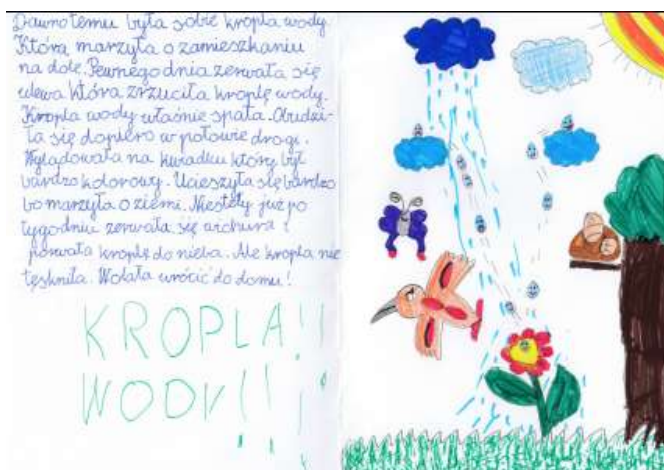 Dawno temu była sobie kropla wody.
Która marzyła o zamieszkaniu
na dole. Pewnego dnia zerwała się
ulewa która zrzuciła kroplę wody.
Kropla wody właśnie spała. Obudzi-
ła się dopiero w połowie drogi.
Wylądowała na kwiatku który był
bardzo kolorowy. Ucieszyła się bardzo
bo marzyła o ziemi. Niestety już po
tygodniu zerwała się wichura i
porwała kroplę do nieba. Ale kropla nie
tęskniła. Wolała wrócić do domu!
KROPLA!!
WODY!!!